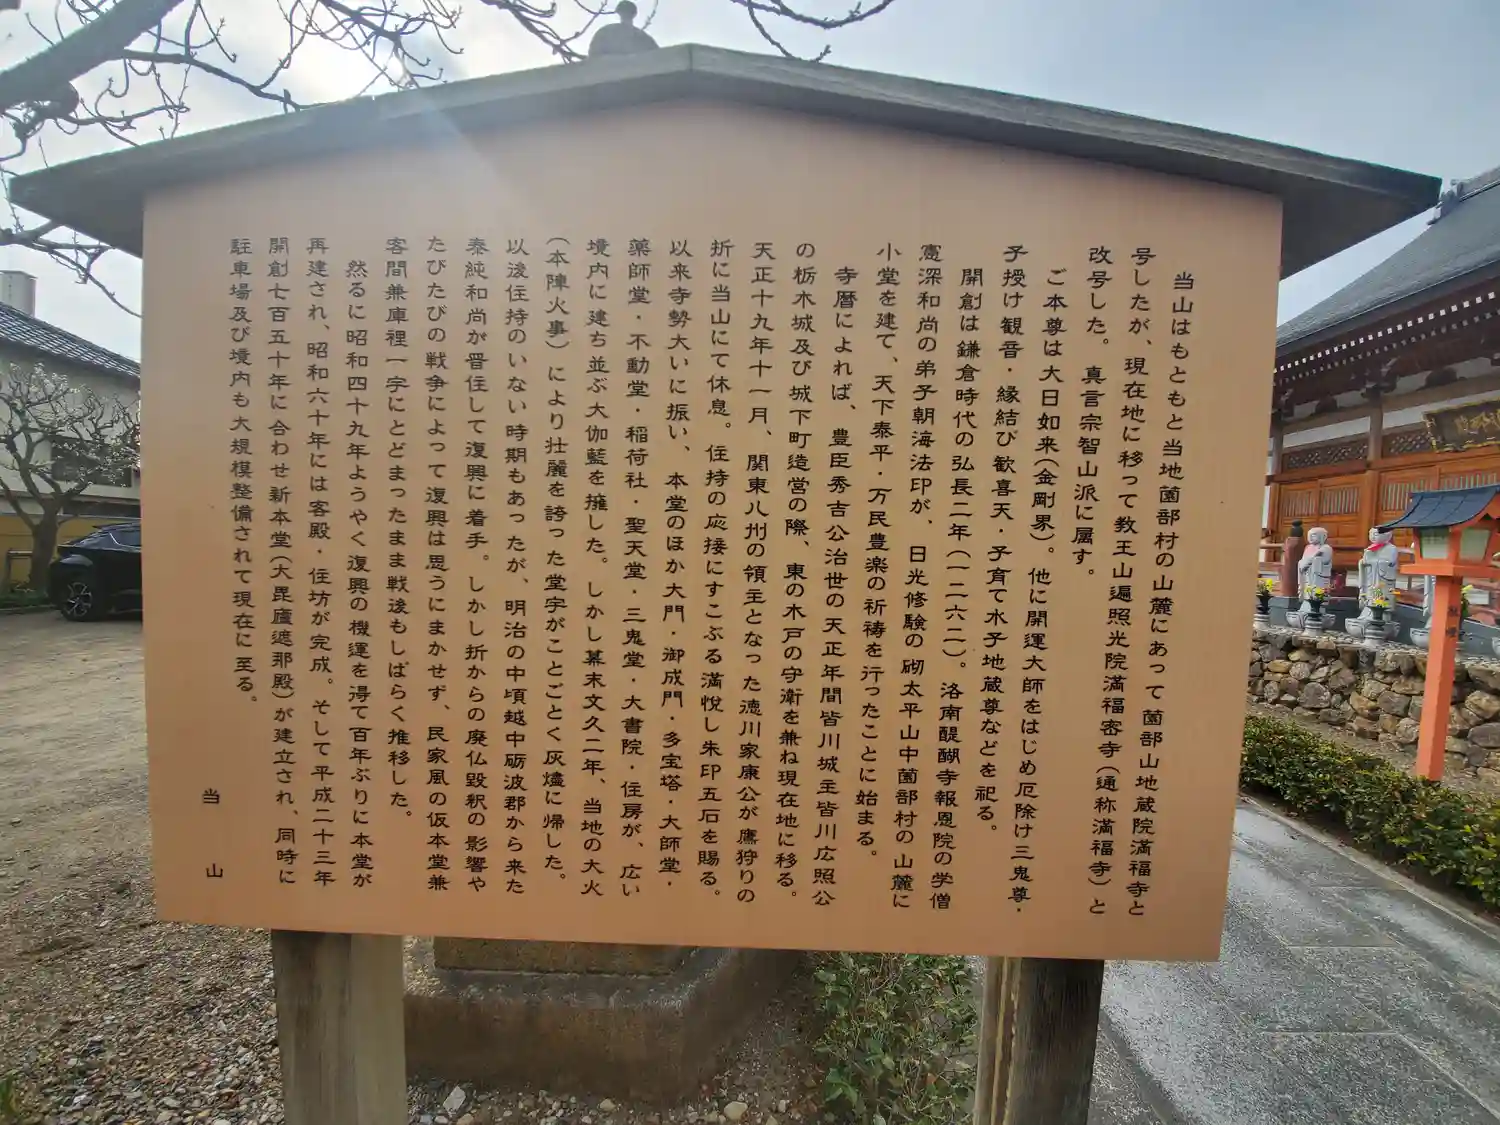 当山はもともと当地薗部村の山麓にあって薗部山地蔵院満福寺と
号したが、現在地に移って教王山遍照光院満福密寺（通称満福寺）と
改号した。真言宗智山派に属す。
ご本尊は大日如来（金剛界）。他に開運大師をはじめ厄除け三鬼尊・
子授け観音・縁結び歓喜天・子育て水子地蔵尊などを祀る。
開創は鎌倉時代の弘長二年（一二六二）。洛南醍醐寺報恩院の学僧
憲深和尚の弟子朝海法印が、日光修験の砌太平山中薗部村の山麓に
小堂を建て、天下泰平・万民豊楽の祈祷を行ったことに始まる。
寺暦によれば、豊臣秀吉公治世の天正年間皆川城主皆川広照公
の栃木城及び城下町造営の際、東の木戸の守衛を兼ね現在地に移る。
天正十九年十一月、関東八州の領主となった徳川家康公が鷹狩りの
折に当山にて休息。住持の応接にすこぶる満悦し朱印五石を賜る。
以来寺勢大いに振い、本堂のほか大門・御成門・多宝塔・大師堂・
薬師堂・不動堂・稲荷社・聖天堂・三鬼堂・大書院・住房が、広い
境内に建ち並ぶ大伽藍を擁した。しかし幕末文久二年、当地の大火
（本陣火事）により壮麗を誇った堂宇がことごとく灰燼に帰した。
以後住持のいない時期もあったが、明治の中頃越中砺波郡から来た
泰純和尚が晋住して復興に着手。しかし折からの廃仏毀釈の影響や
たびたびの戦争によって復興は思うにまかせず、民家風の仮本堂兼
客間兼庫裡一宇にとどまったまま戦後もしばらく推移した。
然るに昭和四十九年ようやく復興の機運を得て百年ぶりに本堂が
再建され、昭和六十年には客殿・住坊が完成。そして平成二十三年
開創七百五十年に合わせ新本堂（大毘廬遮那殿）が建立され、同時に
駐車場及び境内も大規模整備されて現在に至る。
当山